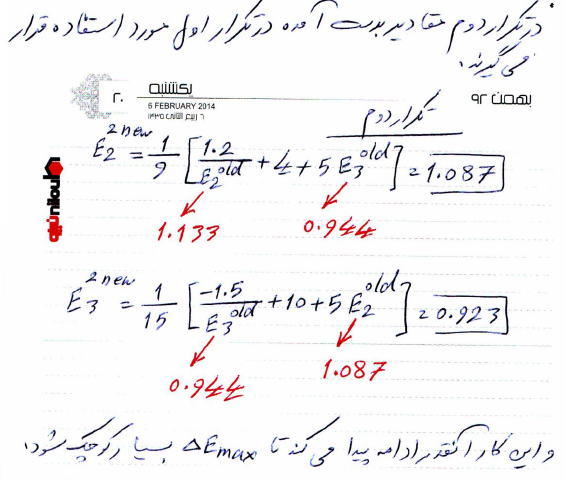 در تکرار دوم مقادیر بدست آمده در تکرار اول مورد استفاده قرار
می گیرند.
یکشنبه
۲۰
بهمن ۹۲
6 FEBRUARY 2014
۶ ربیع الثانی ۱۴۳۵
تکرار دوم
E₂^{2 new} = 1/9 [1.2/E₂^{old} + 4 + 5 E₃^{old}] = 1.087
1.133 0.944
E₃^{2 new} = 1/15 [-1.5/E₃^{old} + 10 + 5 E₂^{old}] = 0.923
0.944 1.087
و این کار آنقدر ادامه پیدا می کند تا ΔEmax بسیار کوچک شود.